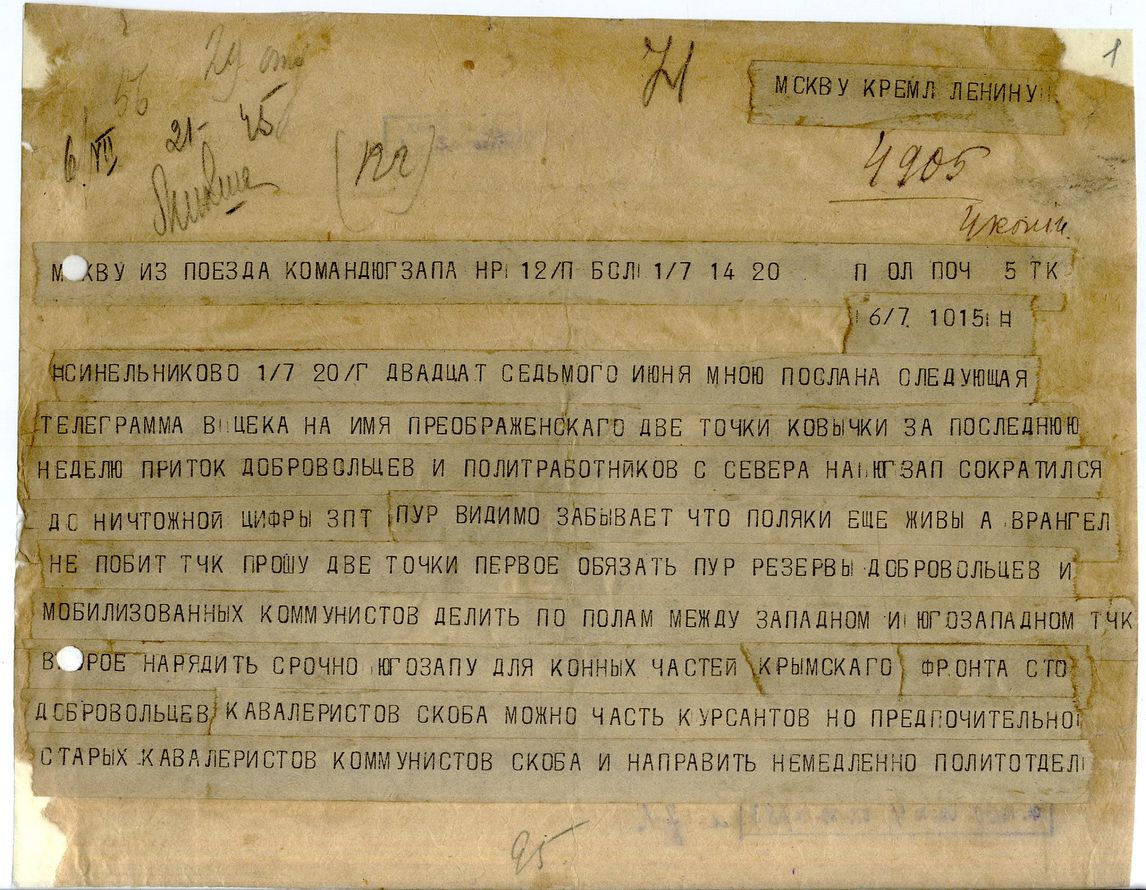 1
56 29
71
МСКВУ КРЕМЛ ЛЕНИНУ
6/VII 21- 45
(122)
4905
4 копии.
М КВУ ИЗ ПОЕЗДА КОМАНДЮГЗАПА НР 12/П БСЛ 1/7 14 20 П ОЛ ПОЧ 5 ТК
6/7 1015 Н
НСИНЕЛЬНИКОВО 1/7 20/Г ДВАДЦАТ СЕДЬМОГО ИЮНЯ МНОЮ ПОСЛАНА СЛЕДУЮЩАЯ
ТЕЛЕГРАММА В ЦЕКА НА ИМЯ ПРЕОБРАЖЕНСКАГО ДВЕ ТОЧКИ КОВЫЧКИ ЗА ПОСЛЕДНЮЮ
НЕДЕЛЮ ПРИТОК ДОБРОВОЛЬЦЕВ И ПОЛИТРАБОТНИКОВ С СЕВЕРА НА ЮГЗАП СОКРАТИЛСЯ
ДО НИЧТОЖНОЙ ЦИФРЫ ЗПТ ПУР ВИДИМО ЗАБЫВАЕТ ЧТО ПОЛЯКИ ЕЩЕ ЖИВЫ А ВРАНГЕЛ
НЕ ПОБИТ ТЧК ПРОШУ ДВЕ ТОЧКИ ПЕРВОЕ ОБЯЗАТЬ ПУР РЕЗЕРВЫ ДОБРОВОЛЬЦЕВ И
МОБИЛИЗОВАННЫХ КОММУНИСТОВ ДЕЛИТЬ ПО ПОЛАМ МЕЖДУ ЗАПАДНОМ И ЮГОЗАПАДНОМ ТЧК
В ОРОЕ НАРЯДИТЬ СРОЧНО ЮГОЗАПУ ДЛЯ КОННЫХ ЧАСТЕЙ КРЫМСКАГО ФРОНТА СТО
ДОБРОВОЛЬЦЕВ КАВАЛЕРИСТОВ СКОБА МОЖНО ЧАСТЬ КУРСАНТОВ НО ПРЕДПОЧИТЕЛЬНО
СТАРЫХ КАВАЛЕРИСТОВ КОММУНИСТОВ СКОБА И НАПРАВИТЬ НЕМЕДЛЕННО ПОЛИТОТДЕЛ
95